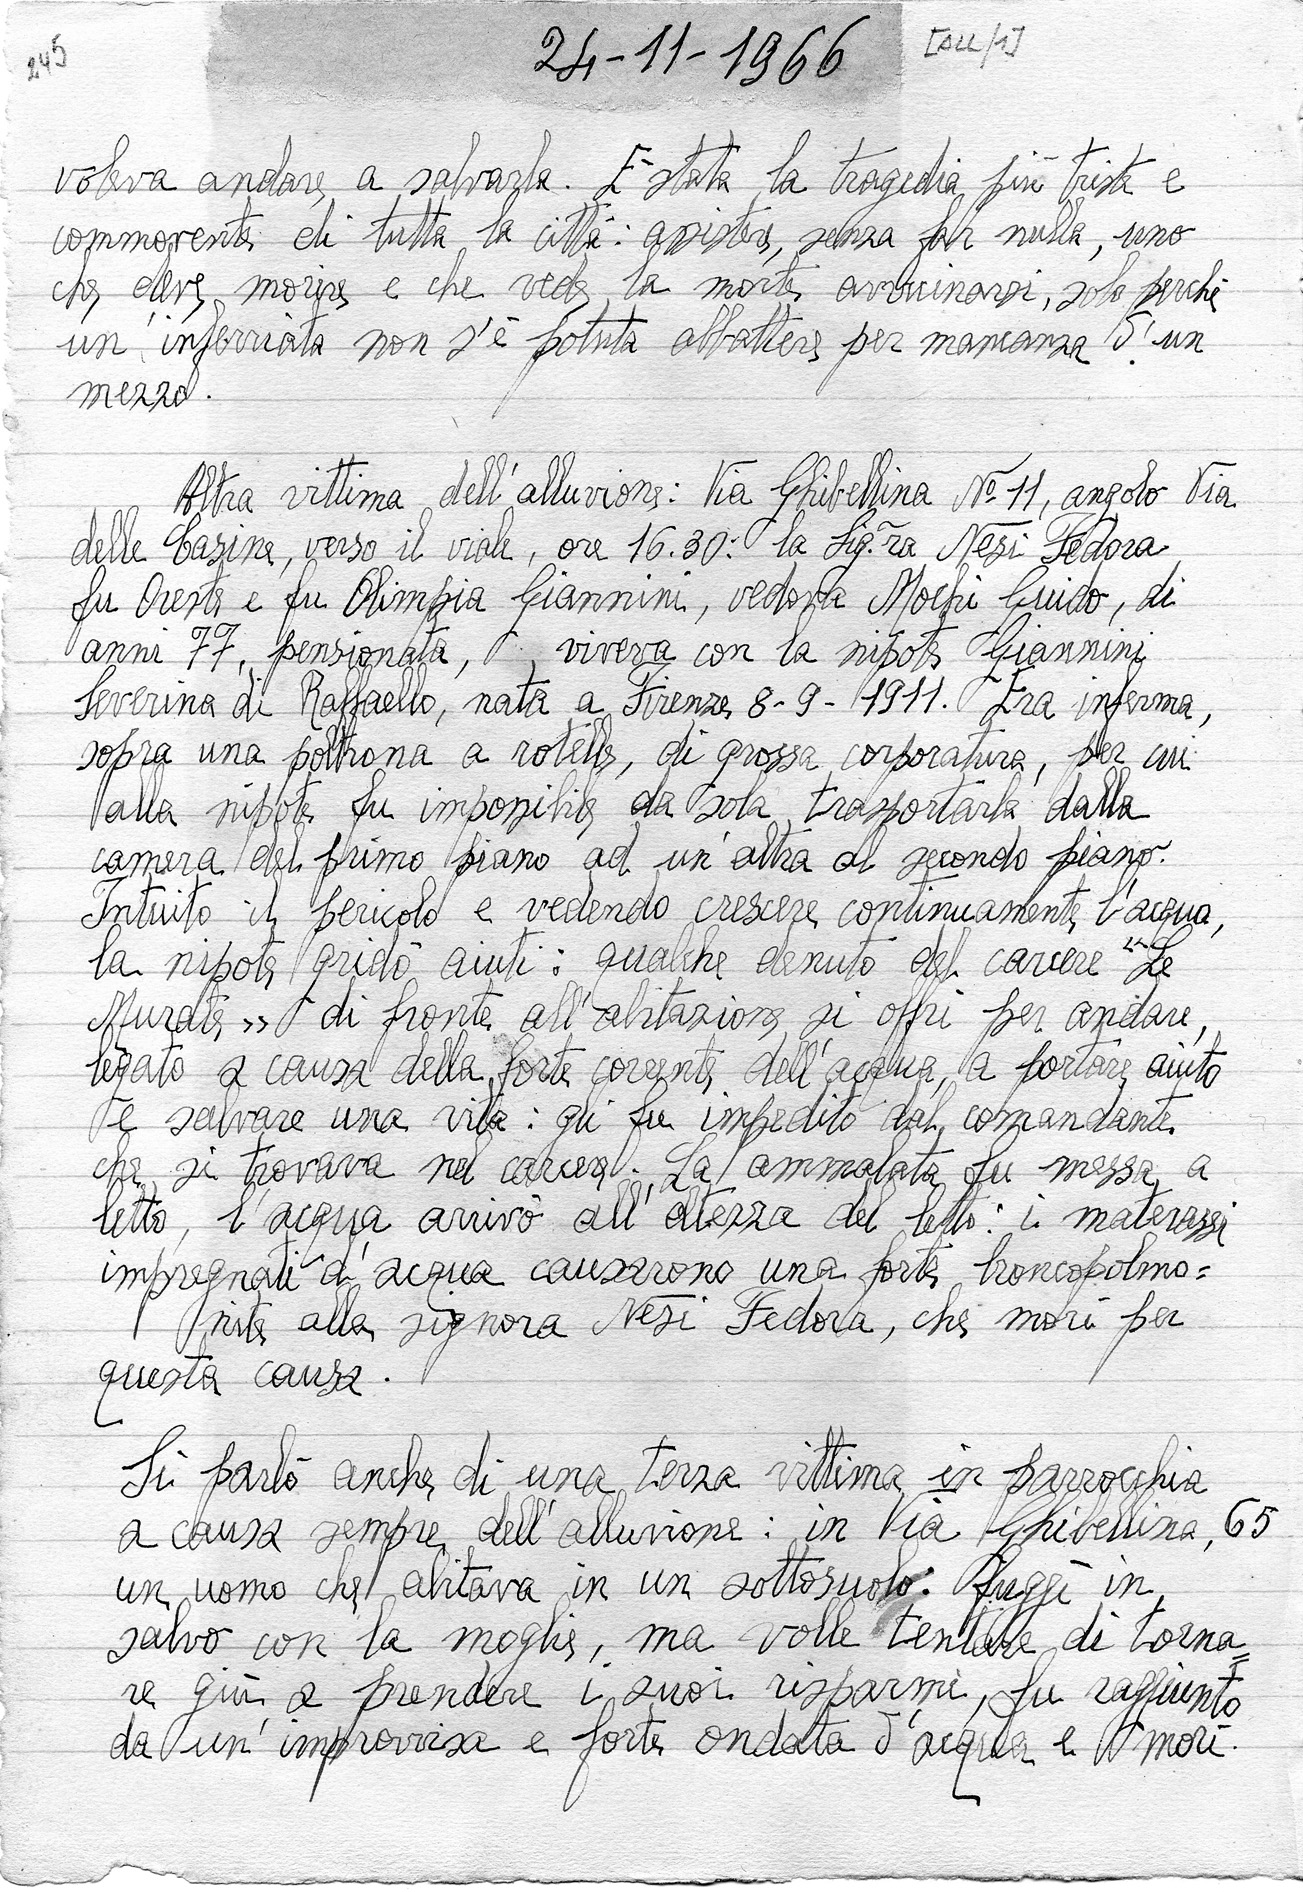 245
24-11-1966
[ALL/1]
voleva andare a salvarla. È stata la tragedia più triste e
commovente di tutta la città: assistere, senza far nulla, uno
che deve morire e che vede la morte avvicinarsi, solo perché
un'inferriata non s'è potuta abbattere per mancanza d'un
mezzo.
Altra vittima dell'alluvione: Via Ghibellina Nº 11, angolo Via
delle Casine, verso il viale, ore 16.30: la Sig.ra Nesi Fedora
fu Oreste e fu Olimpia Giannini, vedova Mochi Guido, di
anni 77, pensionata, viveva con la nipote Giannini
Severina di Raffaello, nata a Firenze 8-9-1911. Era inferma,
sopra una poltrona a rotelle, di grossa corporatura, per cui
alla nipote fu impossibile da sola trasportarla dalla
camera del primo piano ad un'altra al secondo piano.
Intuito il pericolo e vedendo crescere continuamente l'acqua,
la nipote gridò aiuti: qualche denuto del carcere "Le
Murate» di fronte all'abitazione si offrì per andare,
legato a causa della forte corente dell'acqua, a portare aiuto
e salvare una vita: gli fu impedito dal comandante
che si trovava nel carcere. La ammalata fu messa a
letto, l'acqua arrivò all'altezza del letto: i materassi
impregnati d'acqua causarono una forte broncopolmo=
nite alla signora Nesi Fedora, che morì per
questa causa.
Si parlò anche di una terza vittima in parrocchia
a causa sempre dell'alluvione: in Via Ghibellina, 65
un uomo che abitava in un sottosuolo. Fuggì in
salvo con la moglie, ma volle tentare di torna=
re giù a prendere i suoi risparmi, fu raggiunto
da un'improvvisa e forte ondata d'acqua e morì.